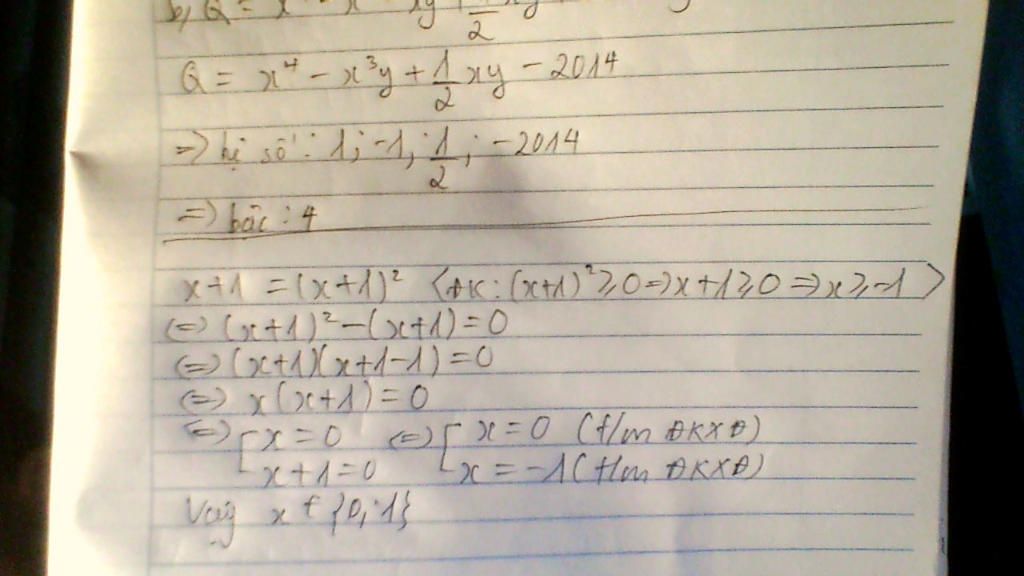 b, Q = x
Q = x⁴ - x³y + 1/2 xy - 2014
=> hệ số: 1; -1; 1/2; -2014
=> bậc: 4
x+1 = (x+1)² <ĐK: (x+1)² ≥ 0 => x+1 ≥ 0 => x ≥ -1>
<=> (x+1)² - (x+1) = 0
<=> (x+1)(x+1-1) = 0
<=> x(x+1) = 0
<=> [ x = 0 <=> [ x = 0 (t/m ĐKXĐ)
x+1 = 0 x = -1 (t/m ĐKXĐ)
Vậy x ∈ {0; -1}